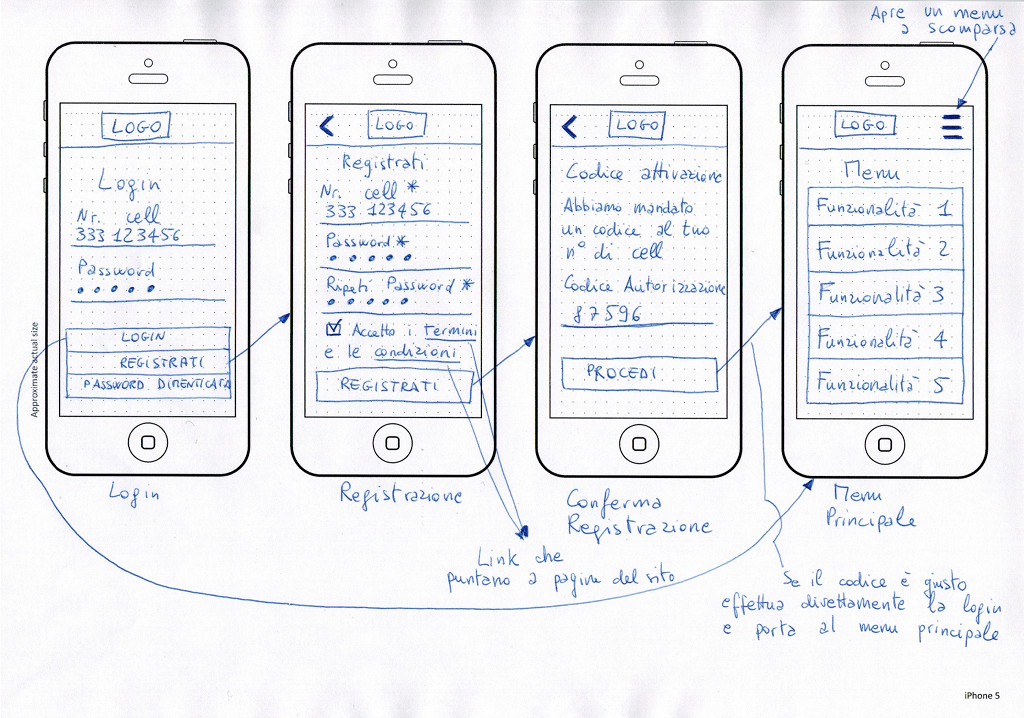 Apre un menu
a scomparsa
LOGO
Login
Nr. cell
333 123456
Password
LOGIN
REGISTRATI
PASSWORD DIMENTICATA
Login
LOGO
Registrati
Nr. cell *
333 123456
Password *
Ripeti Password *
Accetto i termini
e le condizioni
REGISTRATI
Registrazione
LOGO
Codice attivazione
Abbiamo mandato
un codice al tuo
n° di cell
Codice Autorizzazione
87596
PROCEDI
Conferma
Registrazione
LOGO
Menu
Funzionalità 1
Funzionalità 2
Funzionalità 3
Funzionalità 4
Funzionalità 5
Menu
Principale
Link che
puntano a pagine del sito
Se il codice è giusto
effettua direttamente la login
e porta al menu principale
Approximate actual size
iPhone 5